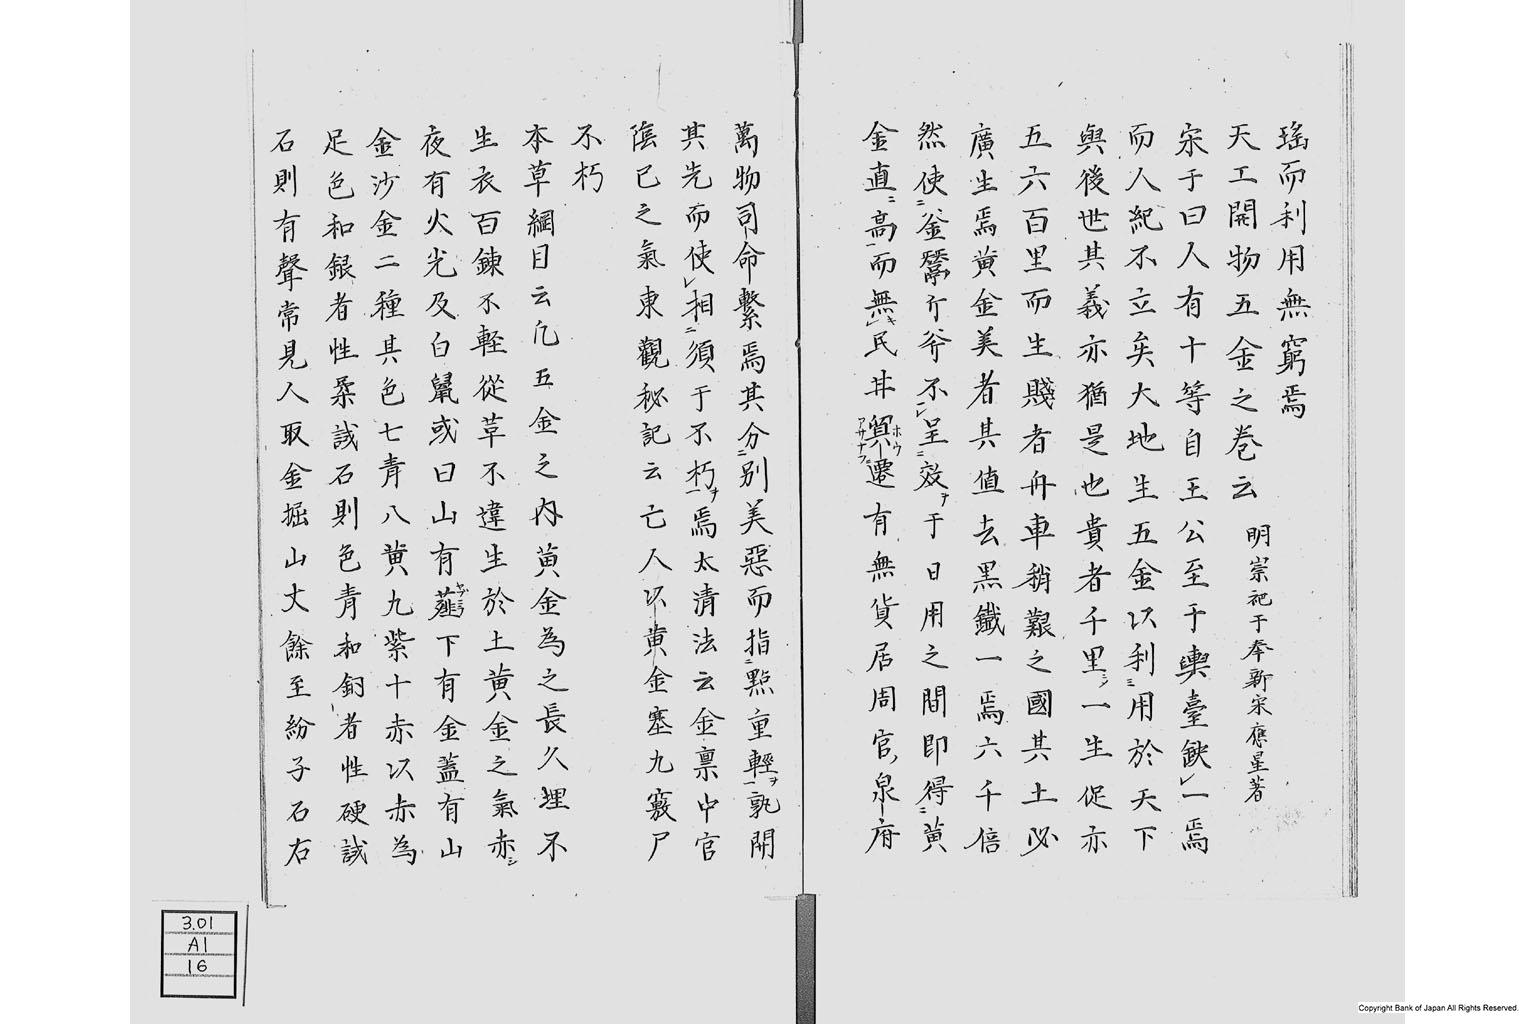 瑤而利用無窮焉
天工開物五金之巻云 明崇祀于奉新宋應星著
宋子曰人有十等自王公至于輿臺缺一焉
而人紀不立矣大地生五金以利用於天下
與後世其義亦猶是也貴者千里一生促亦
五六百里而生賤者舟車稍艱之國其土必
廣生焉黄金美者其值去黒鐵一焉六千倍
然使釜鬵斤斧不呈效于日用之間即得黄
金直高而無民丼貿遷有無貨居周官泉府
萬物司命繫焉其分別美惡而指點重輕孰開
其先而使相須于不朽焉太清法云金禀中官
陰已之氣東觀秘記云亡人以黄金塞九竅尸
不朽
本草綱目云凢五金之内黄金為之長久埋不
生衣百錬不軽從草不違生於土黄金之氣赤
夜有火光及白鼠或曰山有薤下有金葢有山
金沙金二種其色七青八黄九紫十赤以赤為
足色和銀者性柔試石則色青和銅者性硬試
石則有聲常見人取金掘山丈餘至紛子石右
3.01
A1
16
Copyright Bank of Japan All Rights Reserved.